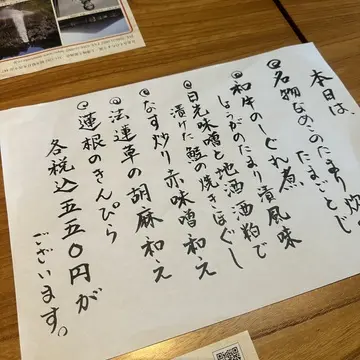 本日は、
◎名物なめこのたまり炊き
たまごとじ
◎和牛のしぐれ煮
しょうがのたまり漬風味
◎日光味噌と地酒酒粕で
漬けた鮭の焼きほぐし
◎なす炒り赤味噌和え
◎法蓮草の胡麻和え
◎蓮根のきんぴら
各税込五五〇円が
ございます。